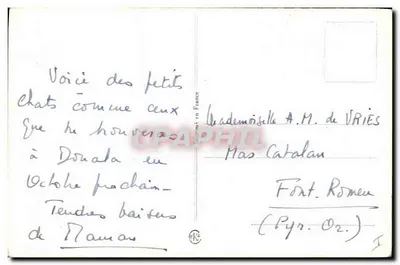 Voici des petits
chats comme ceux
que tu trouveras
à Douala en
Octobre prochain -
Tendres baisers
de Maman
Mademoiselle A.M. de VRIES
Mas Catalan
Font-Romeu
(Pyr. Or.)
CPAPHIL
en France